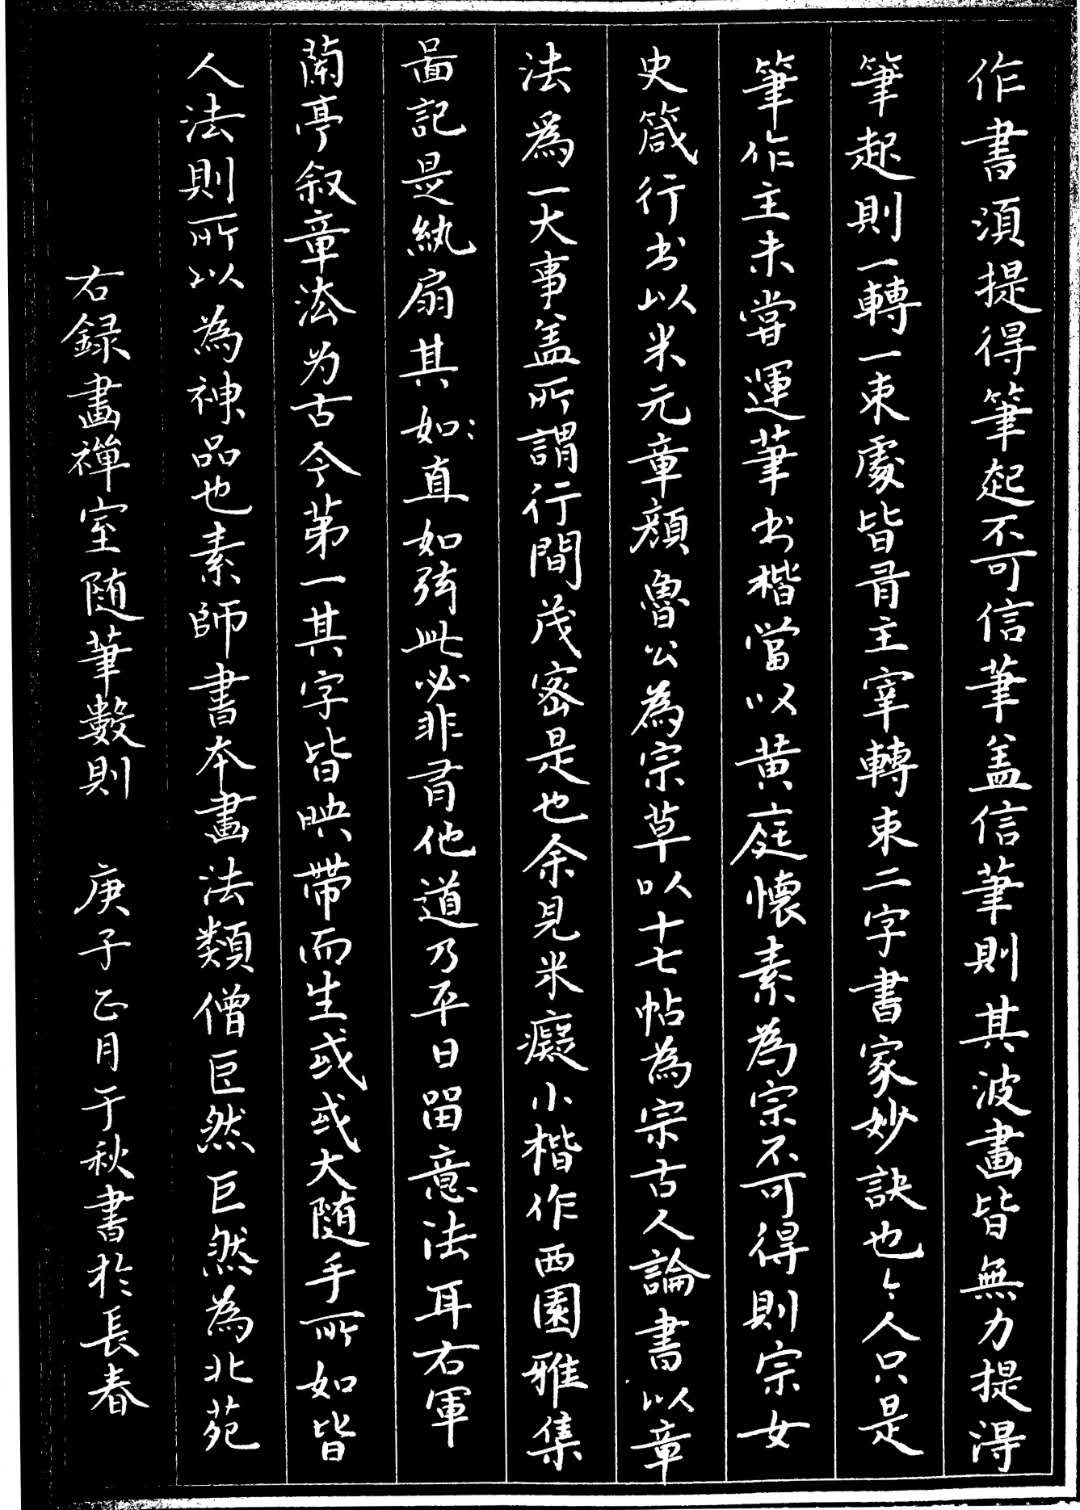 作書須提得筆起不可信筆盖信筆則其波畫皆無力提得
筆起則一轉一束處皆有主宰轉束二字書家妙訣也今人只是
筆作主未嘗運筆书楷當以黄庭懷素為宗不可得則宗女
史箴行书以米元章顔魯公為宗草以十七帖為宗古人論書以章
法爲一大事盖所謂行間茂密是也余見米癡小楷作西園雅集
啚記是紈扇其如〻直如弦此必非有他道乃平日留意法耳右軍
蘭亭叙章法为古今苐一其字皆映帶而生或或大随手所如皆
人法則所以為神品也素師書本畫法類僧巨然巨然為北苑
右録畫禪室随筆數則 庚子正月于秋書於長春